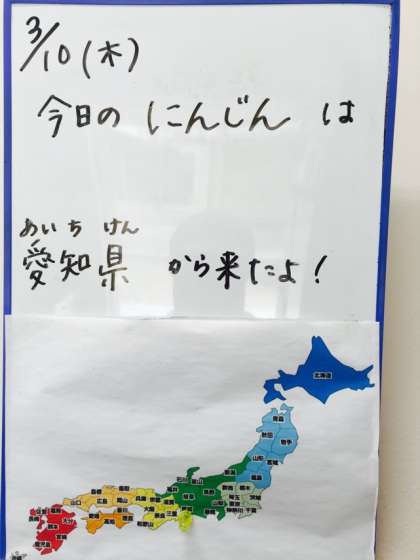 3/10(木)
今日の にんじん は
あいち けん
愛知県 から来たよ！
北海道
青森
秋田 岩手
山形 宮城
福島
新潟
石川 富山
福井
長野
岐阜
群馬 栃木
埼玉 茨城
東京
山梨
神奈川 千葉
静岡
愛知
鳥取
島根
兵庫 京都
滋賀
大阪
奈良 三重
和歌山
岡山
広島
山口
香川
愛媛
徳島
高知
福岡
佐賀
長崎
大分
熊本
宮崎
鹿児島
沖縄